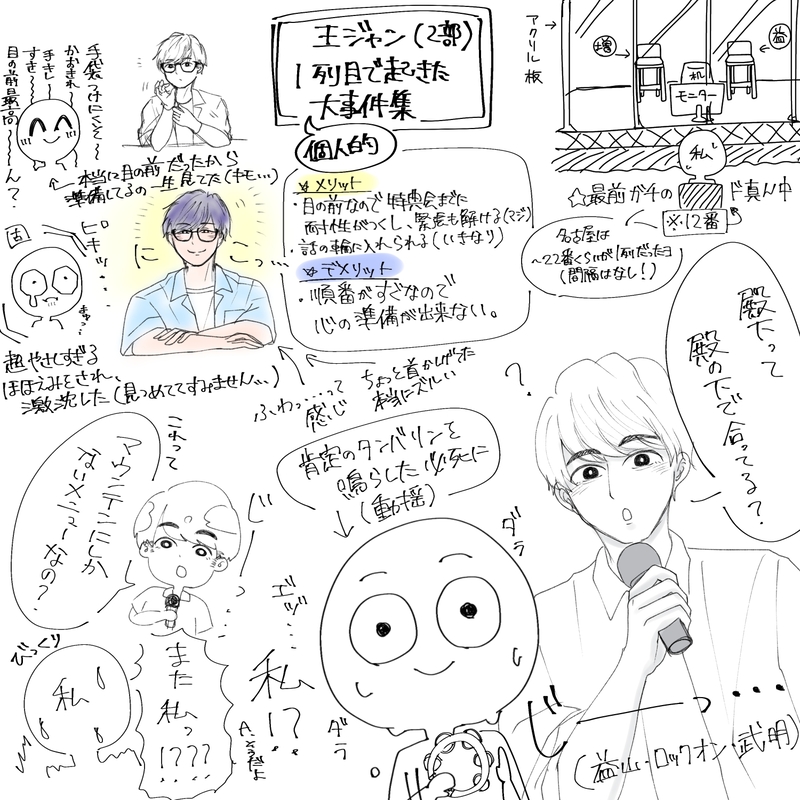 王ジャン(2部)
1列目で起きた
大事件集
個人的
アクリル板
増
益
机
モニター
私
☆最前ガチのド真ん中
※12番
名古屋は
~22番くらいが1列だったヨ
(間隔はなし!)
☆メリット
・目の前なので特典会までに
耐性がつくし、緊張も解ける(マジ)
・話の輪に入れられる(いきなり)
☆デメリット
・順番がすぐなので
心の準備が出来ない。
手袋つけにくそ〜
かおきれ〜
手きし〜
すき〜
目の前最高〜〜ん?
←本当に目の前だったから
準備してるの一生見てた(キモ…)
固
ピキッ…
にこっ…
超やさしすぎる
ほほえみをされ、
激沈した(見つめててすみません…)
ふわっ……って
感じ
ちょっと首かしげてた
本当にズルい
殿下って
殿の下で合ってる?
?
肯定のタンバリンを
鳴らした必死に
(動揺)
ダラ
ダラ
これって
マウンテンにしか
ないメニューなの?
じ
エッ…
私!?
A.そうだよ
びっくり
私
また私っ
!???
じーーっ…
(益山・ロックオン・武明)